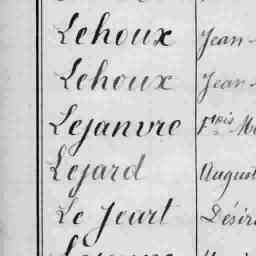 Lehoux Jean-
Lehoux Jean-
Lejanvre F.ois M
Lejard August
Le Jeurt Désir